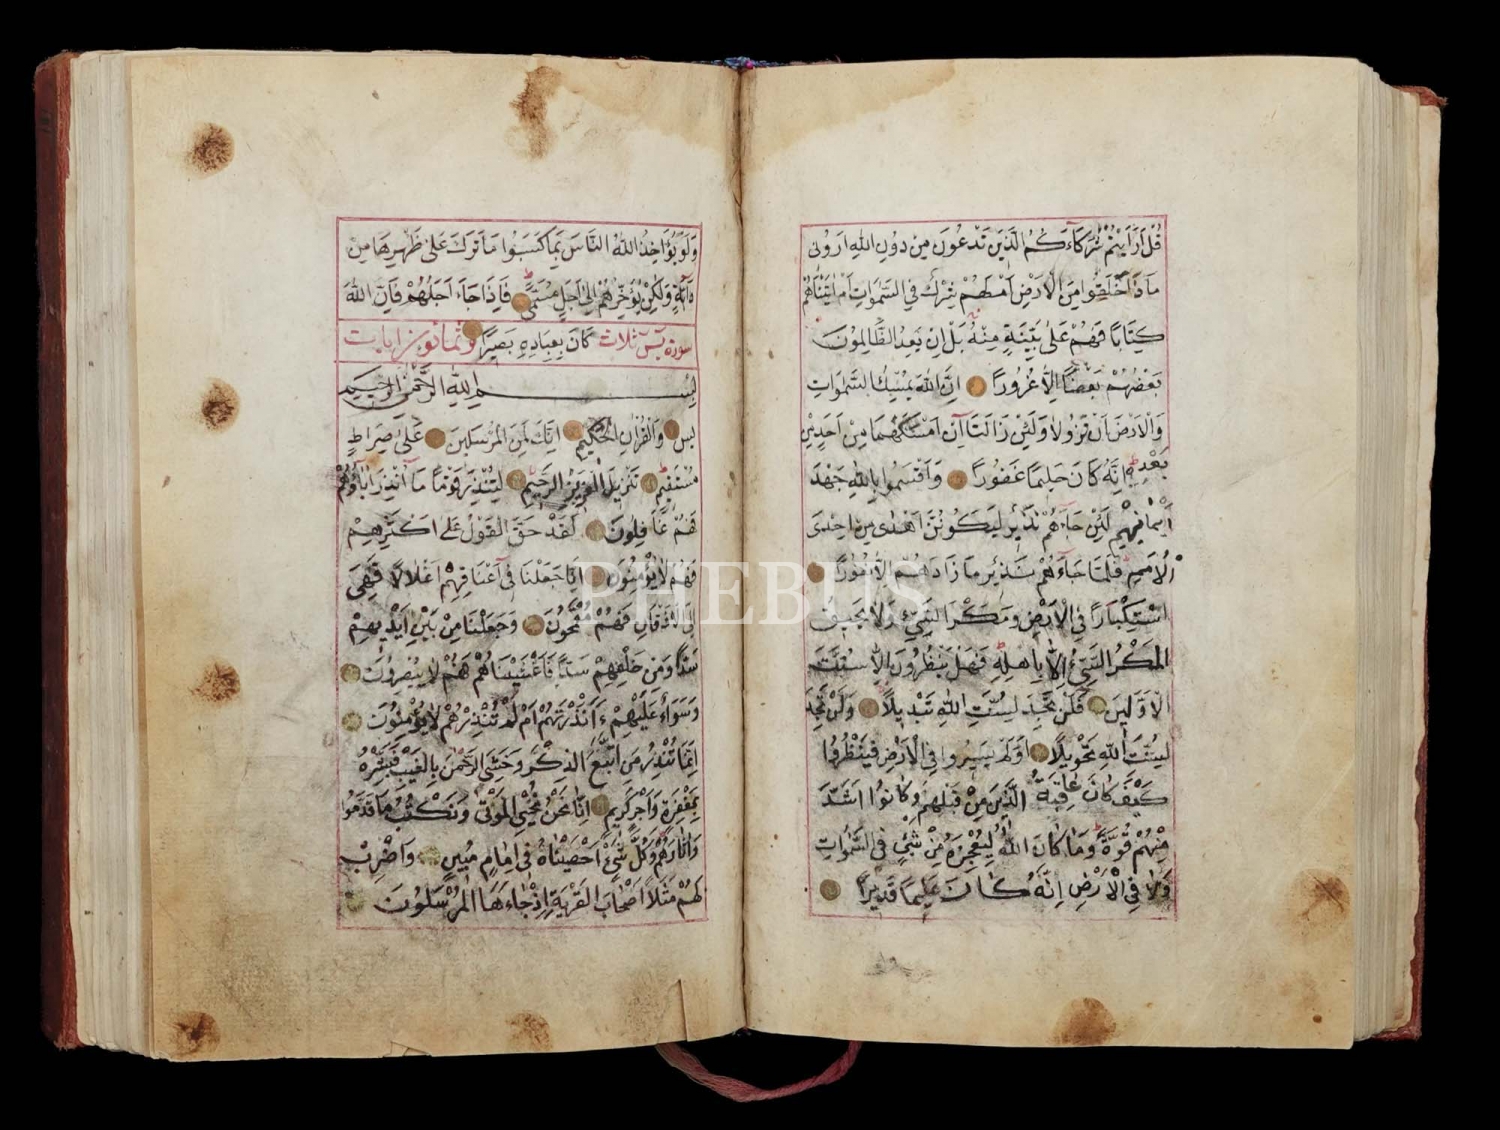 قُلْ اَرَاَيْتُمْ شُرَكَاۤءَكُمُ الَّذِينَ تَدْعُونَ مِنْ دُونِ اللّٰهِ اَرُونِى
مَاذَا خَلَقُوا مِنَ الْاَرْضِ اَمْ لَهُمْ شِرْكٌ فِى السَّمٰوَاتِ اَمْ اٰتَيْنَاهُمْ
كِتَابًا فَهُمْ عَلٰى بَيِّنَةٍ مِنْهُ بَلْ اِنْ يَعِدُ الظَّالِمُونَ
بَعْضُهُمْ بَعْضًا اِلَّا غُرُورًا اِنَّ اللّٰهَ يُمْسِكُ السَّمٰوَاتِ
وَالْاَرْضَ اَنْ تَزُولَا وَلَئِنْ زَالَتَا اِنْ اَمْسَكَهُمَا مِنْ اَحَدٍ مِنْ
بَعْدِهِ اِنَّهُ كَانَ حَلِيمًا غَفُورًا وَاَقْسَمُوا بِاللّٰهِ جَهْدَ
اَيْمَانِهِمْ لَئِنْ جَاۤءَهُمْ نَذِيرٌ لَيَكُونُنَّ اَهْدٰى مِنْ اِحْدَى
الْاُمَمِ فَلَمَّا جَاۤءَهُمْ نَذِيرٌ مَا زَادَهُمْ اِلَّا نُفُورًا
اسْتِكْبَارًا فِى الْاَرْضِ وَمَكْرَ السَّيِّئِ وَلَا يَحِيقُ
الْمَكْرُ السَّيِّئُ اِلَّا بِاَهْلِهِ فَهَلْ يَنْظُرُونَ اِلَّا سُنَّتَ
الْاَوَّلِينَ فَلَنْ تَجِدَ لِسُنَّتِ اللّٰهِ تَبْدِيلًا وَلَنْ تَجِدَ
لِسُنَّتِ اللّٰهِ تَحْوِيلًا اَوَلَمْ يَسِيرُوا فِى الْاَرْضِ فَيَنْظُرُوا
كَيْفَ كَانَ عَاقِبَةُ الَّذِينَ مِنْ قَبْلِهِمْ وَكَانُوا اَشَدَّ
مِنْهُمْ قُوَّةً وَمَا كَانَ اللّٰهُ لِيُعْجِزَهُ مِنْ شَيْئٍ فِى السَّمٰوَاتِ
وَلَا فِى الْاَرْضِ اِنَّهُ كَانَ عَلِيمًا قَدِيرًا
وَلَوْ يُؤَاخِذُ اللّٰهُ النَّاسَ بِمَا كَسَبُوا مَا تَرَكَ عَلٰى ظَهْرِهَا مِنْ
دَاۤبَّةٍ وَلٰكِنْ يُؤَخِّرُهُمْ اِلٰى اَجَلٍ مُسَمًّى فَاِذَا جَاۤءَ اَجَلُهُمْ فَاِنَّ اللّٰهَ
سورة يس ثلاث كَانَ بِعِبَادِهِ بَصِيرًا وثمانون ايات
بِسْمِ اللّٰهِ الرَّحْمٰنِ الرَّحِيمِ
يس وَالْقُرْاٰنِ الْحَكِيمِ اِنَّكَ لَمِنَ الْمُرْسَلِينَ عَلٰى صِرَاطٍ
مُسْتَقِيمٍ تَنْزِيلَ الْعَزِيزِ الرَّحِيمِ لِتُنْذِرَ قَوْمًا مَا اُنْذِرَ اٰبَاۤؤُهُمْ
فَهُمْ غَافِلُونَ لَقَدْ حَقَّ الْقَوْلُ عَلٰى اَكْثَرِهِمْ
فَهُمْ لَا يُؤْمِنُونَ اِنَّا جَعَلْنَا فِى اَعْنَاقِهِمْ اَغْلَالًا فَهِىَ
اِلَى الْاَذْقَانِ فَهُمْ مُقْمَحُونَ وَجَعَلْنَا مِنْ بَيْنِ اَيْدِيهِمْ
سَدًّا وَمِنْ خَلْفِهِمْ سَدًّا فَاَغْشَيْنَاهُمْ فَهُمْ لَا يُبْصِرُونَ
وَسَوَاۤءٌ عَلَيْهِمْ ءَاَنْذَرْتَهُمْ اَمْ لَمْ تُنْذِرْهُمْ لَا يُؤْمِنُونَ
اِنَّمَا تُنْذِرُ مَنِ اتَّبَعَ الذِّكْرَ وَخَشِىَ الرَّحْمٰنَ بِالْغَيْبِ فَبَشِّرْهُ
بِمَغْفِرَةٍ وَاَجْرٍ كَرِيمٍ اِنَّا نَحْنُ نُحْيِى الْمَوْتٰى وَنَكْتُبُ مَا قَدَّمُوا
وَاٰثَارَهُمْ وَكُلَّ شَيْئٍ اَحْصَيْنَاهُ فِى اِمَامٍ مُبِينٍ وَاضْرِبْ
لَهُمْ مَثَلًا اَصْحَابَ الْقَرْيَةِ اِذْ جَاۤءَهَا الْمُرْسَلُونَ
PHEBUS